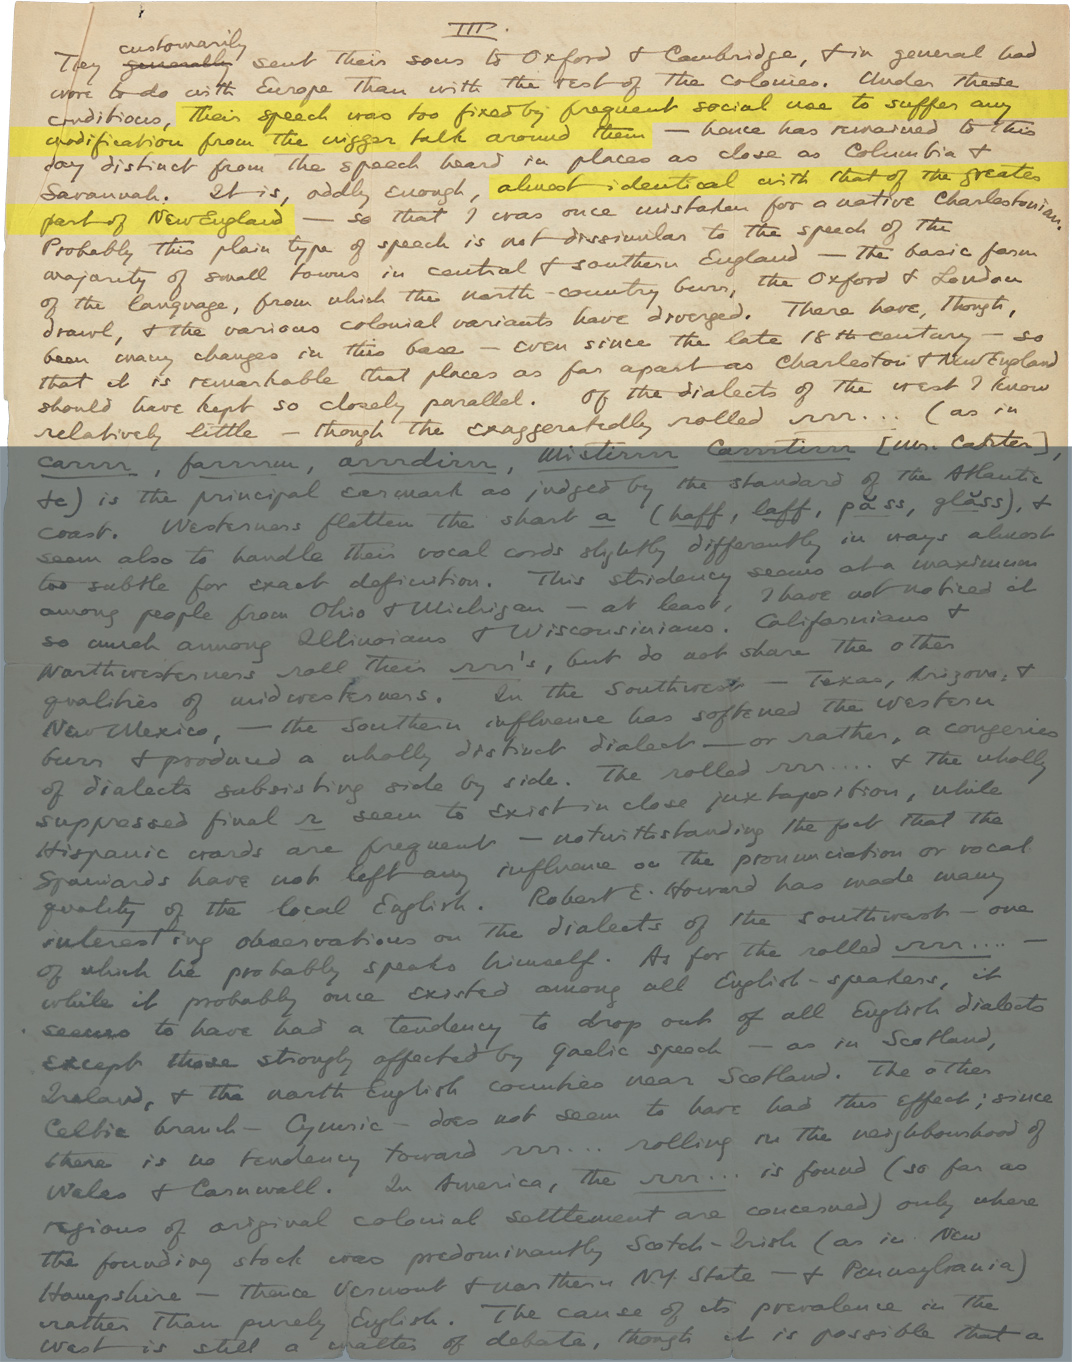 III.
They customarily generally sent their sons to Oxford & Cambridge, & in general had
more to do with Europe than with the rest of the colonies. Under these
conditions, their speech was too fixed by frequent social use to suffer any
modification from the nigger talk around them — hence has remained to this
day distinct from the speech heard in places as close as Columbia &
Savannah. It is, oddly enough, almost identical with that of the greater
part of New England — so that I was once mistaken for a native Charlestonian.
Probably this plain type of speech is not dissimilar to the speech of the
majority of small towns in central & southern England — the basic form
of the language, from which the north-country burr, the Oxford & London
drawl, & the various colonial variants have diverged. There have, though,
been many changes in this base — even since the late 18th century — so
that it is remarkable that places as far apart as Charleston & New England
should have kept so closely parallel. Of the dialects of the west I know
relatively little — though the exaggeratedly rolled rrrr... (as in
carrrr, farrrrm, arrrdirrr, Misterrrr Carrrterrrr [Mr. Carter],
&c) is the principal earmark as judged by the standard of the Atlantic
coast. Westerners flatten the short a (haff, laff, păss, glăss), &
seem also to handle their vocal cords slightly differently in ways almost
too subtle for exact definition. This stridency seems at a maximum
among people from Ohio & Michigan — at least, I have not noticed it
so much among Illinoians & Wisconsinians. Californians &
Northwesterners roll their rrrr's, but do not share the other
qualities of midwesterners. In the Southwest — Texas, Arizona, &
New Mexico, — the Southern influence has softened the western
burr & produced a wholly distinct dialect — or rather, a congeries
of dialects subsisting side by side. The rolled rrrr.... & the wholly
suppressed final r seem to exist in close juxtaposition, while
Hispanic words are frequent — notwithstanding the fact that the
Spaniards have not left any influence on the pronunciation or vocal
quality of the local English. Robert E. Howard has made many
interesting observations on the dialects of the southwest — one
of which he probably speaks himself. As for the rolled rrrr.... —
while it probably once existed among all English-speakers, it
seems to have had a tendency to drop out of all English dialects
except those strongly affected by Gaelic speech — as in Scotland,
Ireland, & the north English counties near Scotland. The other
Celtic branch — Cymric — does not seem to have had this effect; since
there is no tendency toward rrrr... rolling in the neighbourhood of
Wales & Cornwall. In America, the rrrr... is found (so far as
regions of original colonial settlement are concerned) only where
the founding stock was predominantly Scotch-Irish (as in New
Hampshire — thence Vermont & northern N.Y. State — & Pennsylvania)
rather than purely English. The cause of its prevalence in the
west is still a matter of debate, though it is possible that a